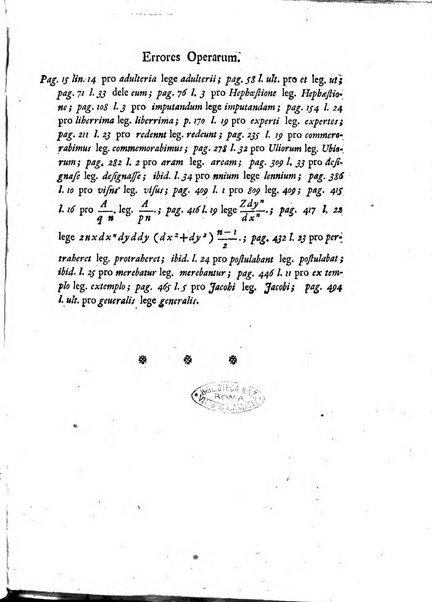 Errores Operarum.
Pag. 15 lin. 14 pro adulteria lege adulterii; pag. 58 l. ult. pro et leg. ut;
pag. 71 l. 33 dele cum; pag. 76 l. 3 pro Hephæſtione leg. Hephæſtio-
ne; pag. 108 l. 3 pro imputandum lege imputandam; pag. 154 l. 24
pro liberrima leg. liberrima; p. 170 l. 19 pro experti leg. expertes;
pag. 211 l. 23 pro redennt leg. redeunt; pag. 235 l. 19 pro commero-
rabimus leg. commemorabimus; pag. 278 l. 32 pro Uliorum leg. Ubio-
rum; pag. 282 l. 2 pro aram leg. aream; pag. 309 l. 33 pro deſi-
gnaſe leg. deſignaſſe; ibid. l. 34 pro nnium lege lennium; pag. 386
l. 10 pro viſut leg. viſus; pag. 409 l. 1 pro 809 leg. 409; pag. 415
l. 16 pro A/q n leg. A/pn.; pag. 416 l. 19 lege Zdyⁿ/dxⁿ; pag. 417 l. 22
lege 2nxdxⁿdyddy (dx²+dy²) n-1/2.; pag. 432 l. 23 pro per-
traheret leg. protraheret; ibid. l. 24 pro poſtulabant leg. poſtulabat;
ibid. l. 25 pro merebatur leg. merebantur; pag. 446 l. 11 pro ex tem-
plo leg. extemplo; pag. 465 l. 5 pro Jacohi leg. Jacobi; pag. 494
l. ult. pro geueralis lege generalis.
BIBLIOTECA NAZ.
ROMA
VITTORIO EMANUELE